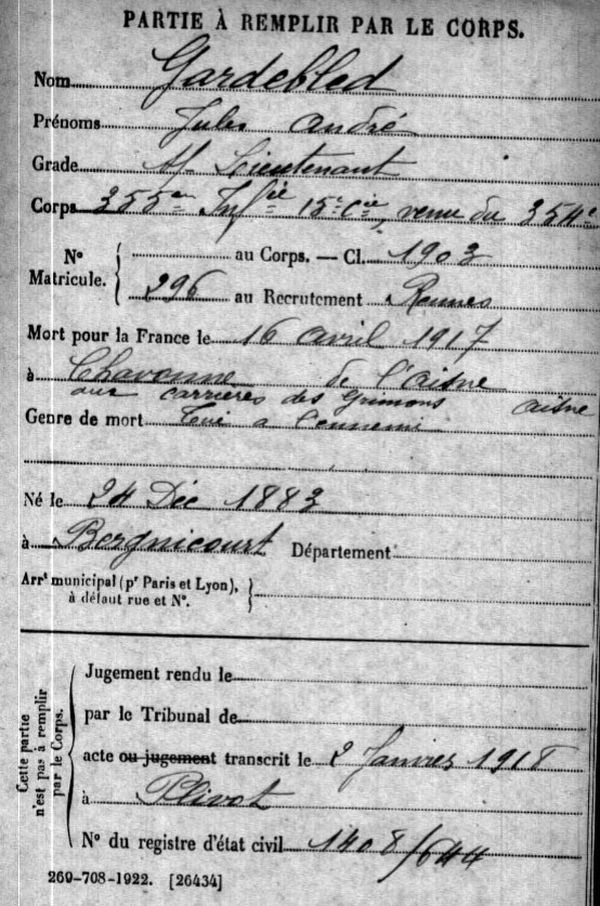 PARTIE À REMPLIR PAR LE CORPS.
Nom Gardebled
Prénoms Jules André
Grade Lieutenant
Corps 355e Infie 15e Cie, venu du 354e
N° Matricule. au Corps. — Cl. 1903
296 au Recrutement Rennes
Mort pour la France le 16 avril 1917
à Chavonne de l'Aisne
aux carrières des Grimons Aisne
Genre de mort Tué à l'ennemi
Né le 24 Déc 1883
à Bergnicourt Département
Arrt municipal (pr Paris et Lyon),
à défaut rue et N°.
Cette partie n'est pas à remplir par le Corps.
Jugement rendu le
par le Tribunal de
acte ou jugement transcrit le 2 Janvier 1918
à Plivot
N° du registre d'état civil 1408/644
269-708-1922. [26434]